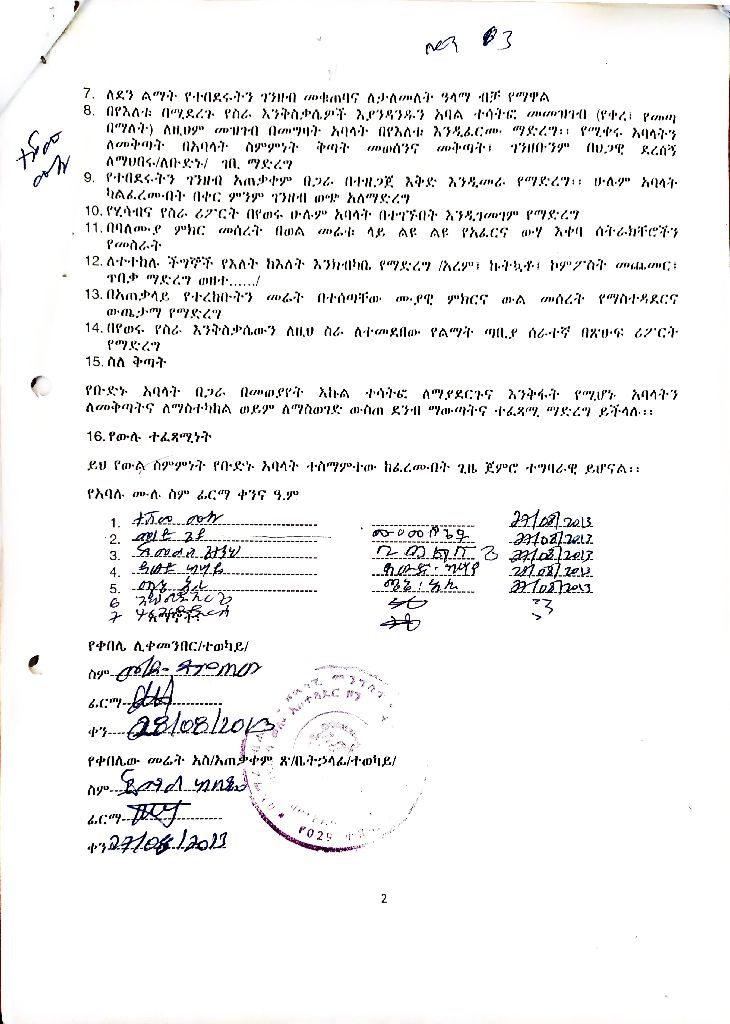 7. ለደን ልማት የተበደሩትን ገንዘብ መቁጠባና ለታለመለት ዓላማ ብቻ የማዋል
8. በየእለቱ በሚደረጉ የስራ እንቅስቃሴዎች እያንዳንዱን አባል ተሳትፎ መመዝገብ (የቀረ፣ የመጣ
በማለት) ለዚህም መዝገብ በመግባት አባላት በየእለቱ እንዲፈርሙ ማድረግ፡፡ የሚቀሩ አባላትን
ለመቅጣት በአባላት ስምምነት ቅጣት መወሰንና መቅጣት፣ ገንዘቡንም በህጋዊ ደረሰኝ
ለማህበሩ/ለቡድኑ/ ገቢ ማድረግ
9. የተበደሩትን ገንዘብ አጠቃቀም በጋራ በተዘጋጀ እቅድ እንዲመራ የማድረግ፡፡ ሁሉም አባላት
ካልፈረሙበት በቀር ምንም ገንዘብ ወጭ አለማድረግ
10. የሂሳብና የስራ ሪፖርት በየወሩ ሁሉም አባላት በተገኙበት እንዲገመገም የማድረግ
11. በባለሙያ ምክር መሰረት በወል መሬቱ ላይ ልዩ ልዩ የአፈርና ውሃ እቀባ ስትራክቸሮችን
የመስራት
12. ለተተከሉ ችግኞች የእለት ከእለት እንክብካቤ የማድረግ /አረም፣ ኩትኳቶ፣ ኮምፖስት መጨመር፣
ጥበቃ ማድረግ ወዘተ....../
13. በአጠቃላይ የተረከቡትን መሬት በተሰጣቸው ሙያዊ ምክርና ውል መሰረት የማስተዳደርና
ውጤታማ የማድረግ
14. በየወሩ የስራ እንቅስቃሴውን ለዚህ ስራ ለተመደበው የልማት ጣቢያ ሰራተኛ በጽሁፍ ሪፖርት
የማድረግ
15. ስለ ቅጣት
የቡድኑ አባላት በጋራ በመወያየት እኩል ተሳትፎ ለማያደርጉና እንቅፋት የሚሆኑ አባላትን
ለመቅጣትና ለማስተካከል ወይም ለማስወገድ ውስጠ ደንብ ማውጣትና ተፈጻሚ ማድረግ ይችላሉ፡፡
16. የውሉ ተፈጻሚነት
ይህ የውል ስምምነት የቡድኑ አባላት ተስማምተው ከፈረሙበት ጊዜ ጀምሮ ተግባራዊ ይሆናል፡፡
የአባሉ ሙሉ ስም ፊርማ ቀንና ዓ.ም
1. 27/08/2013
2. 27/08/2013
3. 27/08/2013
4. 28/08/2013
5. 27/08/2013
6
7
የቀበሌ ሊቀመንበር/ተወካይ/
ስም
ፊርማ
ቀን 28/08/2013
የቀበሌው መሬት አስ/አጠቃቀም ጽ/ቤት ኃላፊ/ተወካይ/
ስም
ፊርማ
ቀን 27/08/2013
2